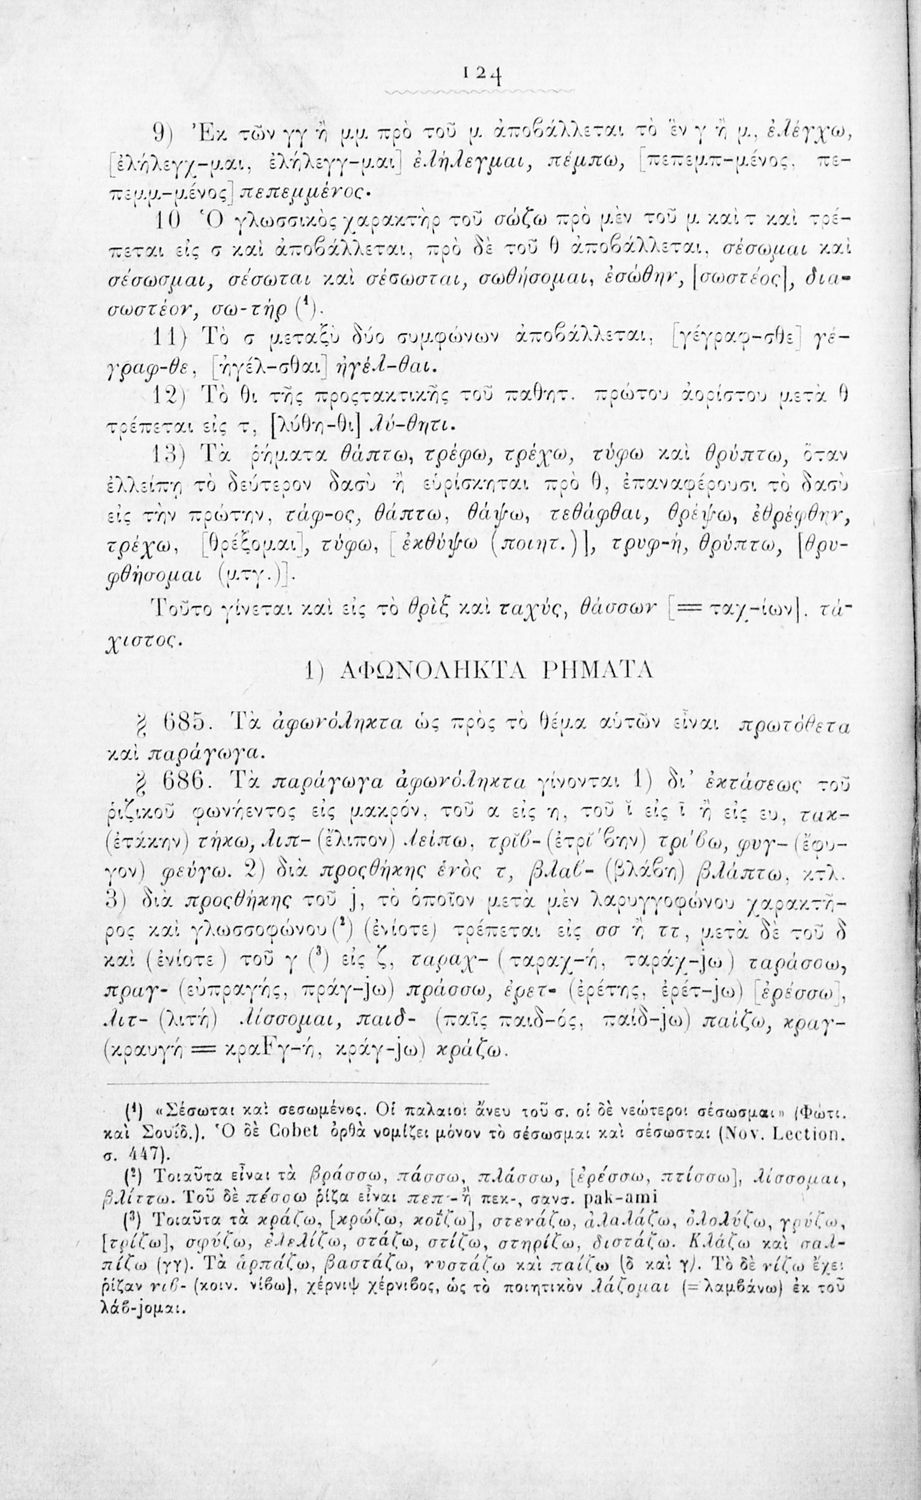 124
9) Ἐκ τῶν γγ ἢ μμ πρὸ τοῦ μ ἀποβάλλεται τὸ ἓν γ ἢ μ, ἐλέγχω,
[ἐλήλεγχ-μαι, ἐλήλεγγ-μαι] ἐλήλεγμαι, πέμπω, [πεπεμπ-μένος, πε-
πεμμ-μένος] πεπεμμένος.
10 Ὁ γλωσσικὸς χαρακτὴρ τοῦ σώζω πρὸ μὲν τοῦ μ καὶ τ καὶ τρέ-
πεται εἰς σ καὶ ἀποβάλλεται, πρὸ δὲ τοῦ θ ἀποβάλλεται, σέσωμαι καὶ
σέσωσμαι, σέσωται καὶ σέσωσται, σωθήσομαι, ἐσώθην, [σωστέος], δια-
σωστέον, σω-τήρ (¹).
11) Τὸ σ μεταξὺ δύο συμφώνων ἀποβάλλεται, [γέγραφ-σθε] γέ-
γραφ-θε, [ἠγέλ-σθαι] ἠγέλ-θαι.
12) Τὸ θι τῆς προςτακτικῆς τοῦ παθητ. πρώτου ἀορίστου μετὰ θ
τρέπεται εἰς τ, [λύθη-θι] λύ-θητι.
13) Τὰ ῥήματα θάπτω, τρέφω, τρέχω, τύφω καὶ θρύπτω, ὅταν
ἐλλείπῃ τὸ δεύτερον δασὺ ἢ εὑρίσκηται πρὸ θ, ἐπαναφέρουσι τὸ δασὺ
εἰς τὴν πρώτην, τάφ-ος, θάπτω, θάψω, τεθάφθαι, θρέψω, ἐθρέφθην,
τρέχω, [θρέξομαι], τύφω, [ἐκθύψω (ποιητ.)], τρυφ-ή, θρύπτω, [θρυ-
φθήσομαι (μτγ.)].
Τοῦτο γίνεται καὶ εἰς τὸ θρὶξ καὶ ταχύς, θάσσων [= ταχ-ίων], τά-
χιστος.
1) ΑΦΩΝΟΛΗΚΤΑ ΡΗΜΑΤΑ
§ 685. Τὰ ἀφωνόληκτα ὡς πρὸς τὸ θέμα αὐτῶν εἶναι πρωτόθετα
καὶ παράγωγα.
§ 686. Τὰ παράγωγα ἀφωνόληκτα γίνονται 1) δι' ἐκτάσεως τοῦ
ῥιζικοῦ φωνήεντος εἰς μακρόν, τοῦ α εἰς η, τοῦ ῐ εἰς ῑ ἢ εἰς ευ, τακ-
(ἐτάκην) τήκω, λιπ- (ἔλιπον) λείπω, τρῐβ- (ἐτρί̆βην) τρί̄βω, φυγ- (ἔφυ-
γον) φεύγω. 2) διὰ προςθήκης ἑνὸς τ, βλαβ- (βλάβη) βλάπτω, κτλ.
3) διὰ προςθήκης τοῦ j, τὸ ὁποῖον μετὰ μὲν λαρυγγοφώνου χαρακτῆ-
ρος καὶ γλωσσοφώνου (²) (ἐνίοτε) τρέπεται εἰς σσ ἢ ττ, μετὰ δὲ τοῦ δ
καὶ (ἐνίοτε) τοῦ γ (³) εἰς ζ, ταραχ- (ταραχ-ή, ταράχ-jω) ταράσσω,
πραγ- (εὐπραγής, πράγ-jω) πράσσω, ἐρετ- (ἐρέτης, ἐρέτ-jω) [ἐρέσσω],
λιτ- (λιτή) λίσσομαι, παιδ- (παῖς παιδ-ός, παίδ-jω) παίζω, κραγ-
(κραυγή = κραFγ-ή, κράγ-jω) κράζω.
(¹) «Σέσωται καὶ σεσωμένος. Οἱ παλαιοὶ ἄνευ τοῦ σ. οἱ δὲ νεώτεροι σέσωσμαι» (Φώτι.
καὶ Σουΐδ.). Ὁ δὲ Cobet ὀρθὰ νομίζει μόνον τὸ σέσωσμαι καὶ σέσωσται (Nov. Lection.
σ. 447).
(²) Τοιαῦτα εἶναι τὰ βράσσω, πάσσω, πλάσσω, [ἐρέσσω, πτίσσω], λίσσομαι,
βλίττω. Τοῦ δὲ πέσσω ῥίζα εἶναι πεπ- ἢ πεκ-, σανσ. pak-ami
(³) Τοιαῦτα τὰ κράζω, [κρώζω, κοΐζω], στενάζω, ἀλαλάζω, ὀλολύζω, γρύζω,
[τρίζω], σφύζω, ἐλελίζω, στάζω, στίζω, στηρίζω, διστάζω. Κλάζω καὶ σαλ-
πίζω (γγ). Τὰ ἁρπάζω, βαστάζω, νυστάζω καὶ παίζω (δ καὶ γ). Τὸ δὲ νίζω ἔχει
ῥίζαν νιβ- (κοιν. νίβω), χέρνιψ χέρνιβος, ὡς τὸ ποιητικὸν λάζομαι (= λαμβάνω) ἐκ τοῦ
λάβ-jομαι.